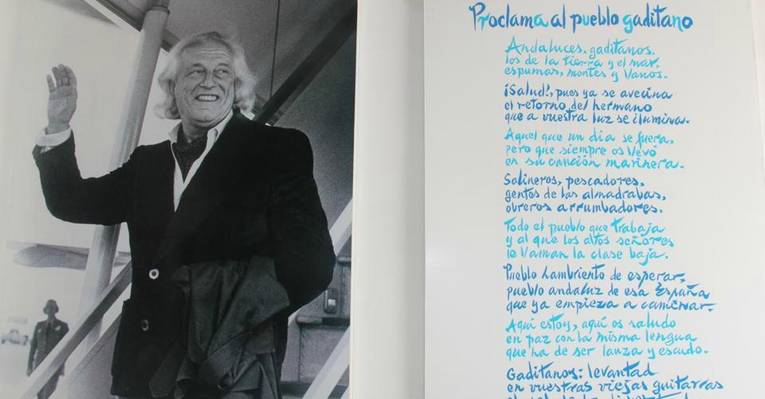 Proclama al pueblo gaditano
Andaluces, gaditanos,
los de la tierra y el mar,
espumas, montes y llanos.
¡Salud!, pues ya se avecina
el retorno del hermano
que a vuestra luz se ilumina.
Aquel que un día se fuera,
pero que siempre os llevó
en su canción marinera.
Salineros, pescadores,
gentes de las almadrabas,
obreros arrumbadores.
Todo el pueblo que trabaja
y al que los altos señores
le llaman la clase baja.
Pueblo hambriento de esperar,
pueblo andaluz de esa España
que ya empieza a caminar.
Aquí estoy, aquí os saludo
en paz con la misma lengua
que ha de ser lanza y escudo.
Gaditanos: levantad
en vuestras viejas guitarras